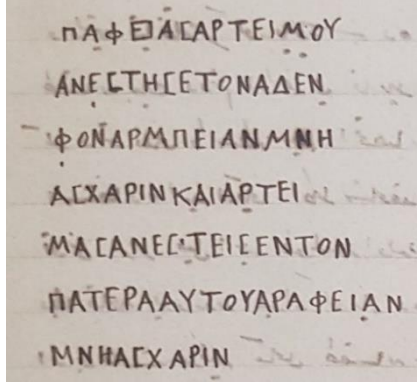 ΠΑΦΕΙΑϹΑΡΤΕΙΜΟΥ
ΑΝΕϹΤΗϹΕΤΟΝΑΔΕΝ
ΦΟΝΑΡΜΠΕΙΑΝΜΝΗ
ΑϹΧΑΡΙΝΚΑΙΑΡΤΕΙ
ΜΑϹΑΝΕϹΤΕΙϹΕΝΤΟΝ
ΠΑΤΕΡΑΑΥΤΟΥΑΡΑΦΕΙΑΝ
ΜΝΗΑϹΧΑΡΙΝ